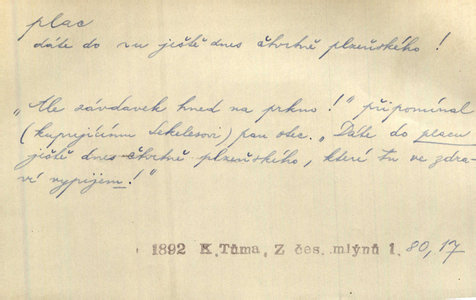 plac
dáte do pu ještě dnes čtvrtně plzeňského!
„Ale závdavek hned na prkno!" připomínal
(kuprejícímu Sekelesovi) pan otec. „Dáte do placu
ještě dnes čtvrtně plzeňského, které tu ve zdra-
ví vypijem!"
1892 K. Tůma, Z čes. mlýnů 1. 80,17